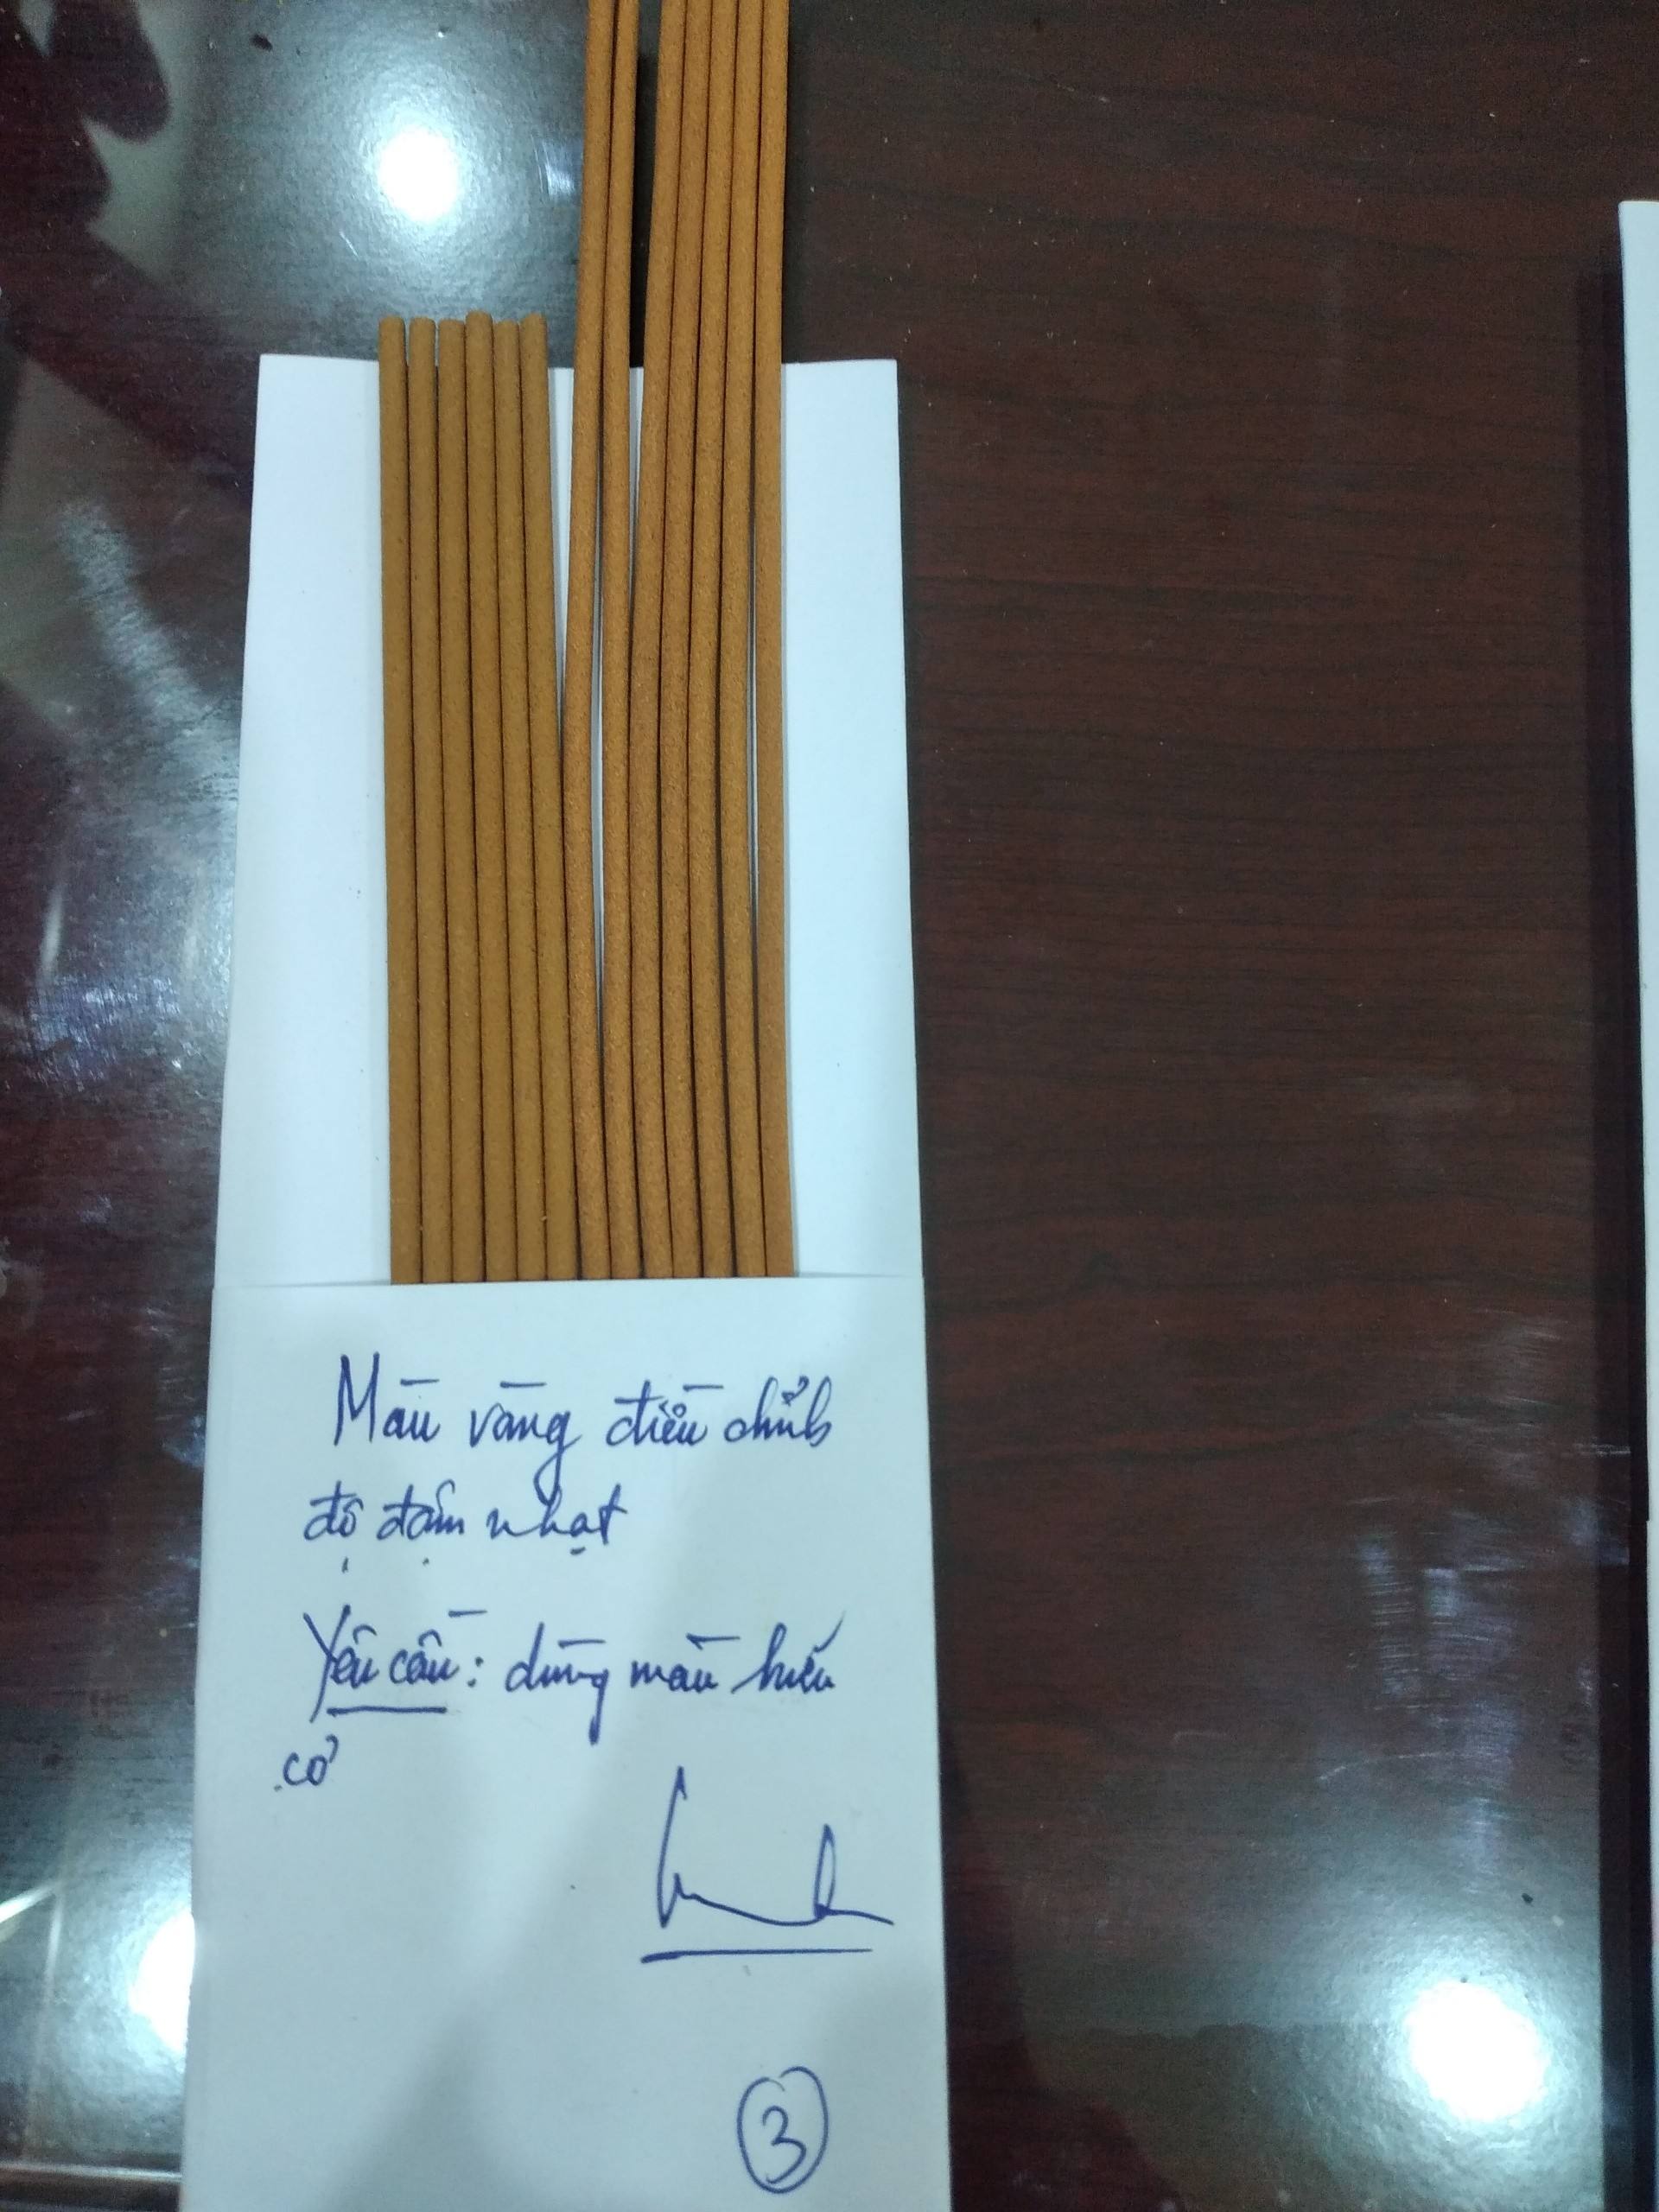 Màu vàng điều chỉnh
độ đậm nhạt
Yêu cầu: dùng màu hữu
cơ
3